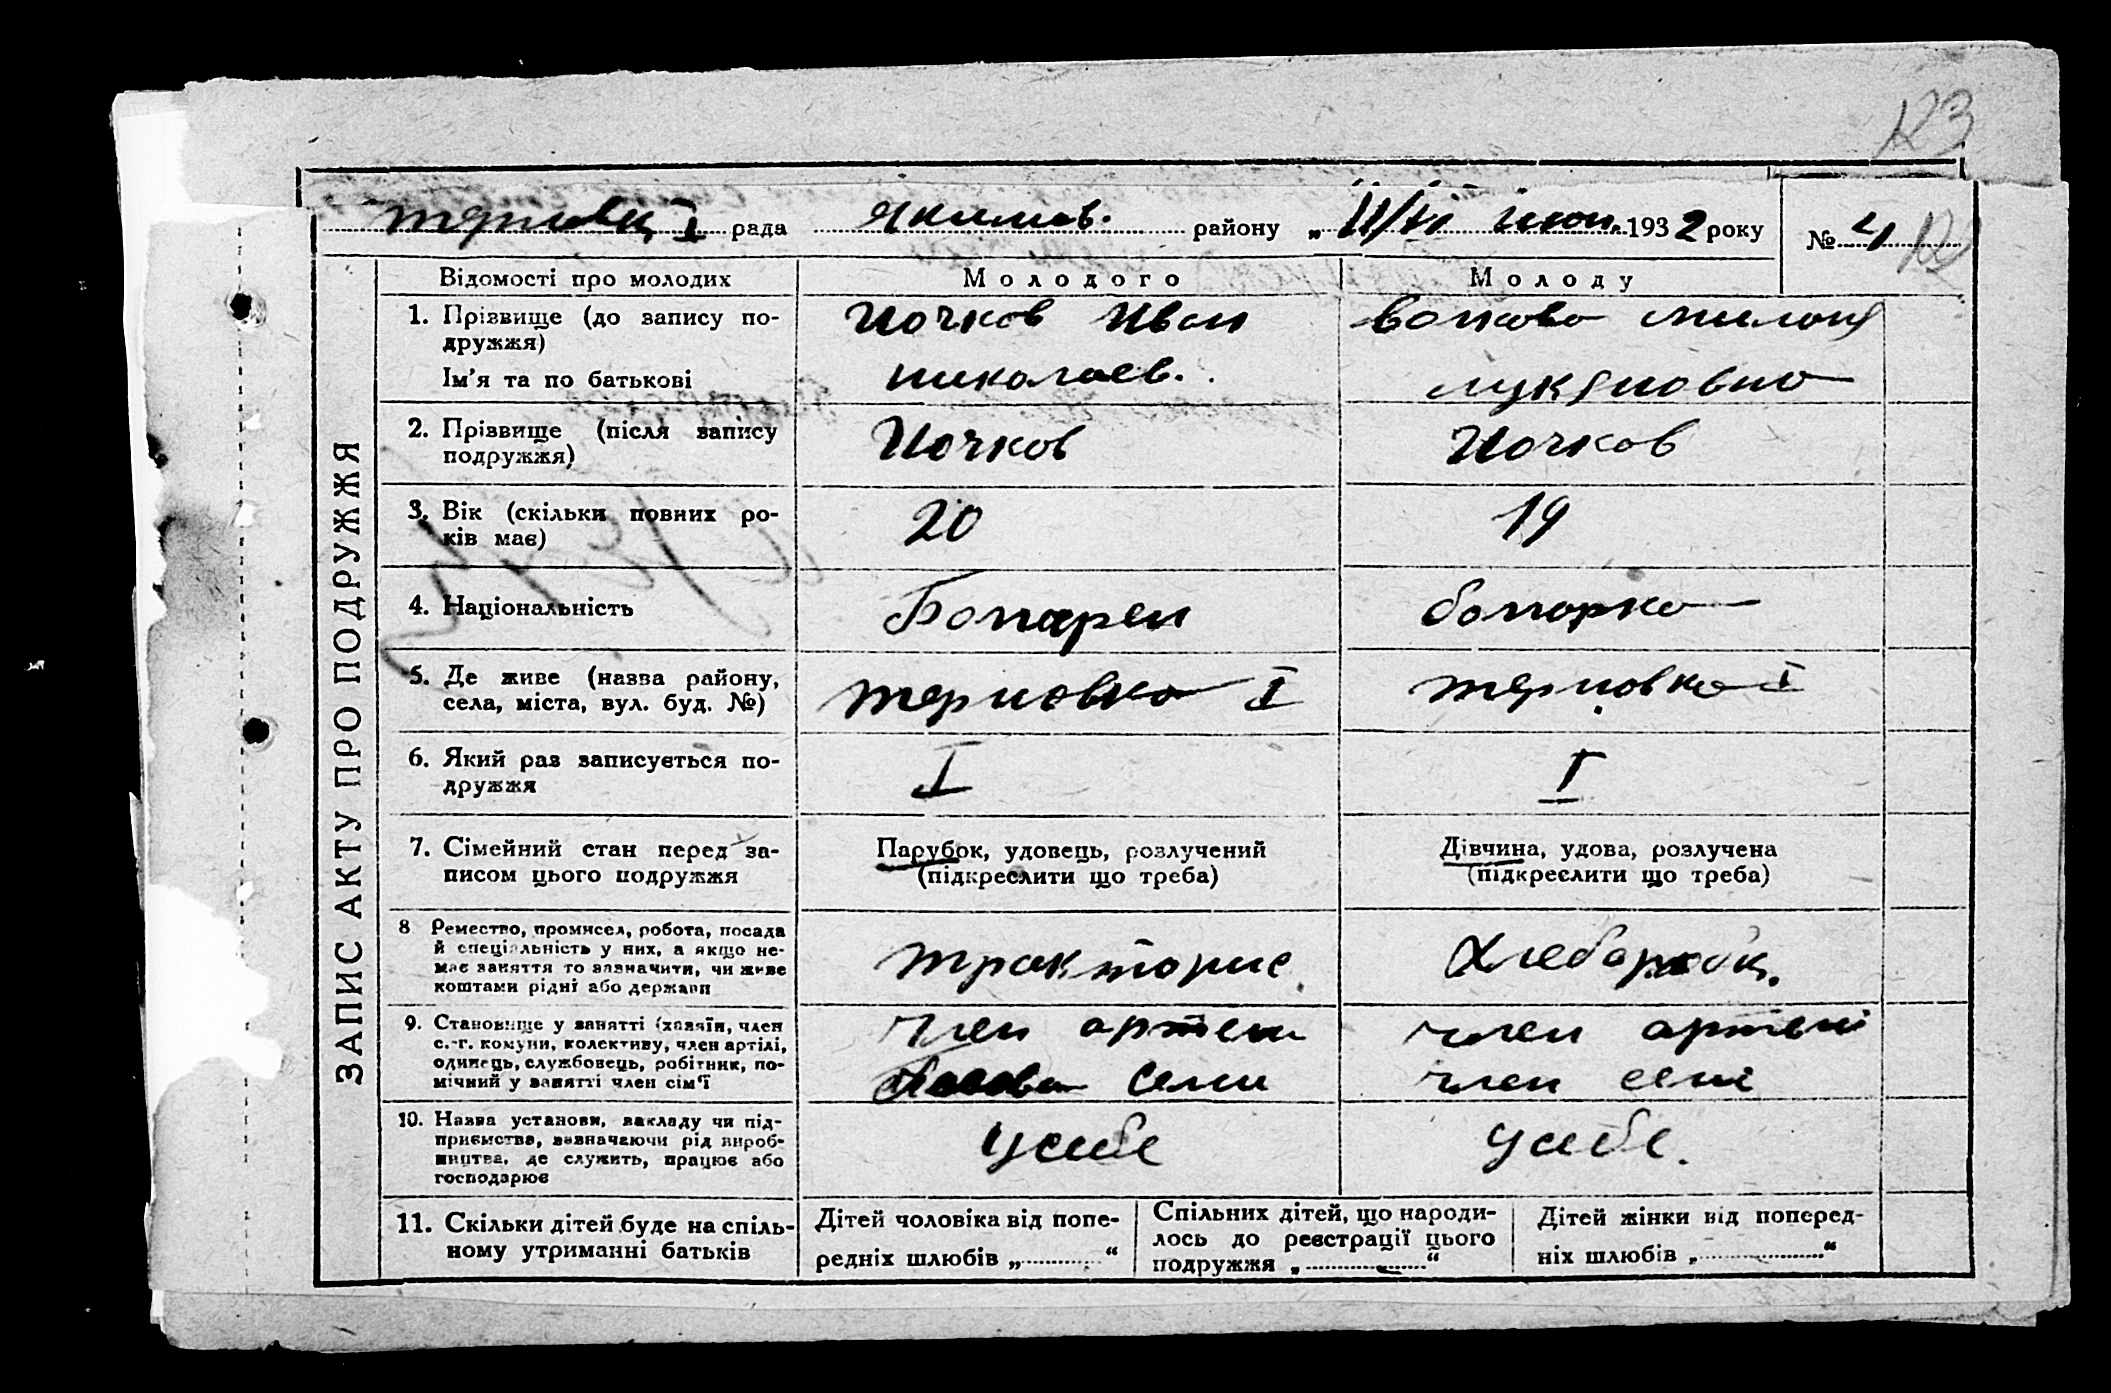 123
терновц I рада якимов. району „ 11/VI июн. 1932 року № 4
ЗАПИС АКТУ ПРО ПОДРУЖЖЯ
Відомості про молодих Молодого Молоду
1. Прізвище (до запису по-
дружжя)
Ім'я та по батькові
Почков Иван
николаев.
волкова милания
лукяновна
2. Прізвище (після запису
подружжя)
Почков
Почков
3. Вік (скільки повних ро-
ків має)
20
19
4. Національність
Болгарен
болгорка
5. Де живе (назва району,
села, міста, вул. буд. №)
терновка I
терновка I
6. Який раз записується по-
дружжя
I
I
7. Сімейний стан перед за-
писом цього подружжя
Парубок, удовець, розлучений
(підкреслити що треба)
Дівчина, удова, розлучена
(підкреслити що треба)
8 Ремество, промисел, робота, посада
й спеціальність у них, а якщо не-
має заняття то зазначити, чи живе
коштами рідні або держави
тракторис
Хлебороб
9. Становище у занятті (хазяїн, член
с.-г. комуни, колективу, член артілі,
одинець, службовець, робітник, по-
мічний у занятті член сім'ї
член артели
семи
член артелі
член семі
10. Назва установи, закладу чи під-
приємства, зазначаючи рід вироб-
ництва, де служить, працює або
господарює
усебе
усебе.
11. Скільки дітей буде на спіль-
ному утриманні батьків
Дітей чоловіка від попе-
редніх шлюбів „ “
Спільних дітей, що народи-
лось до реєстрації цього
подружжя „ “
Дітей жінки від поперед-
ніх шлюбів „ “